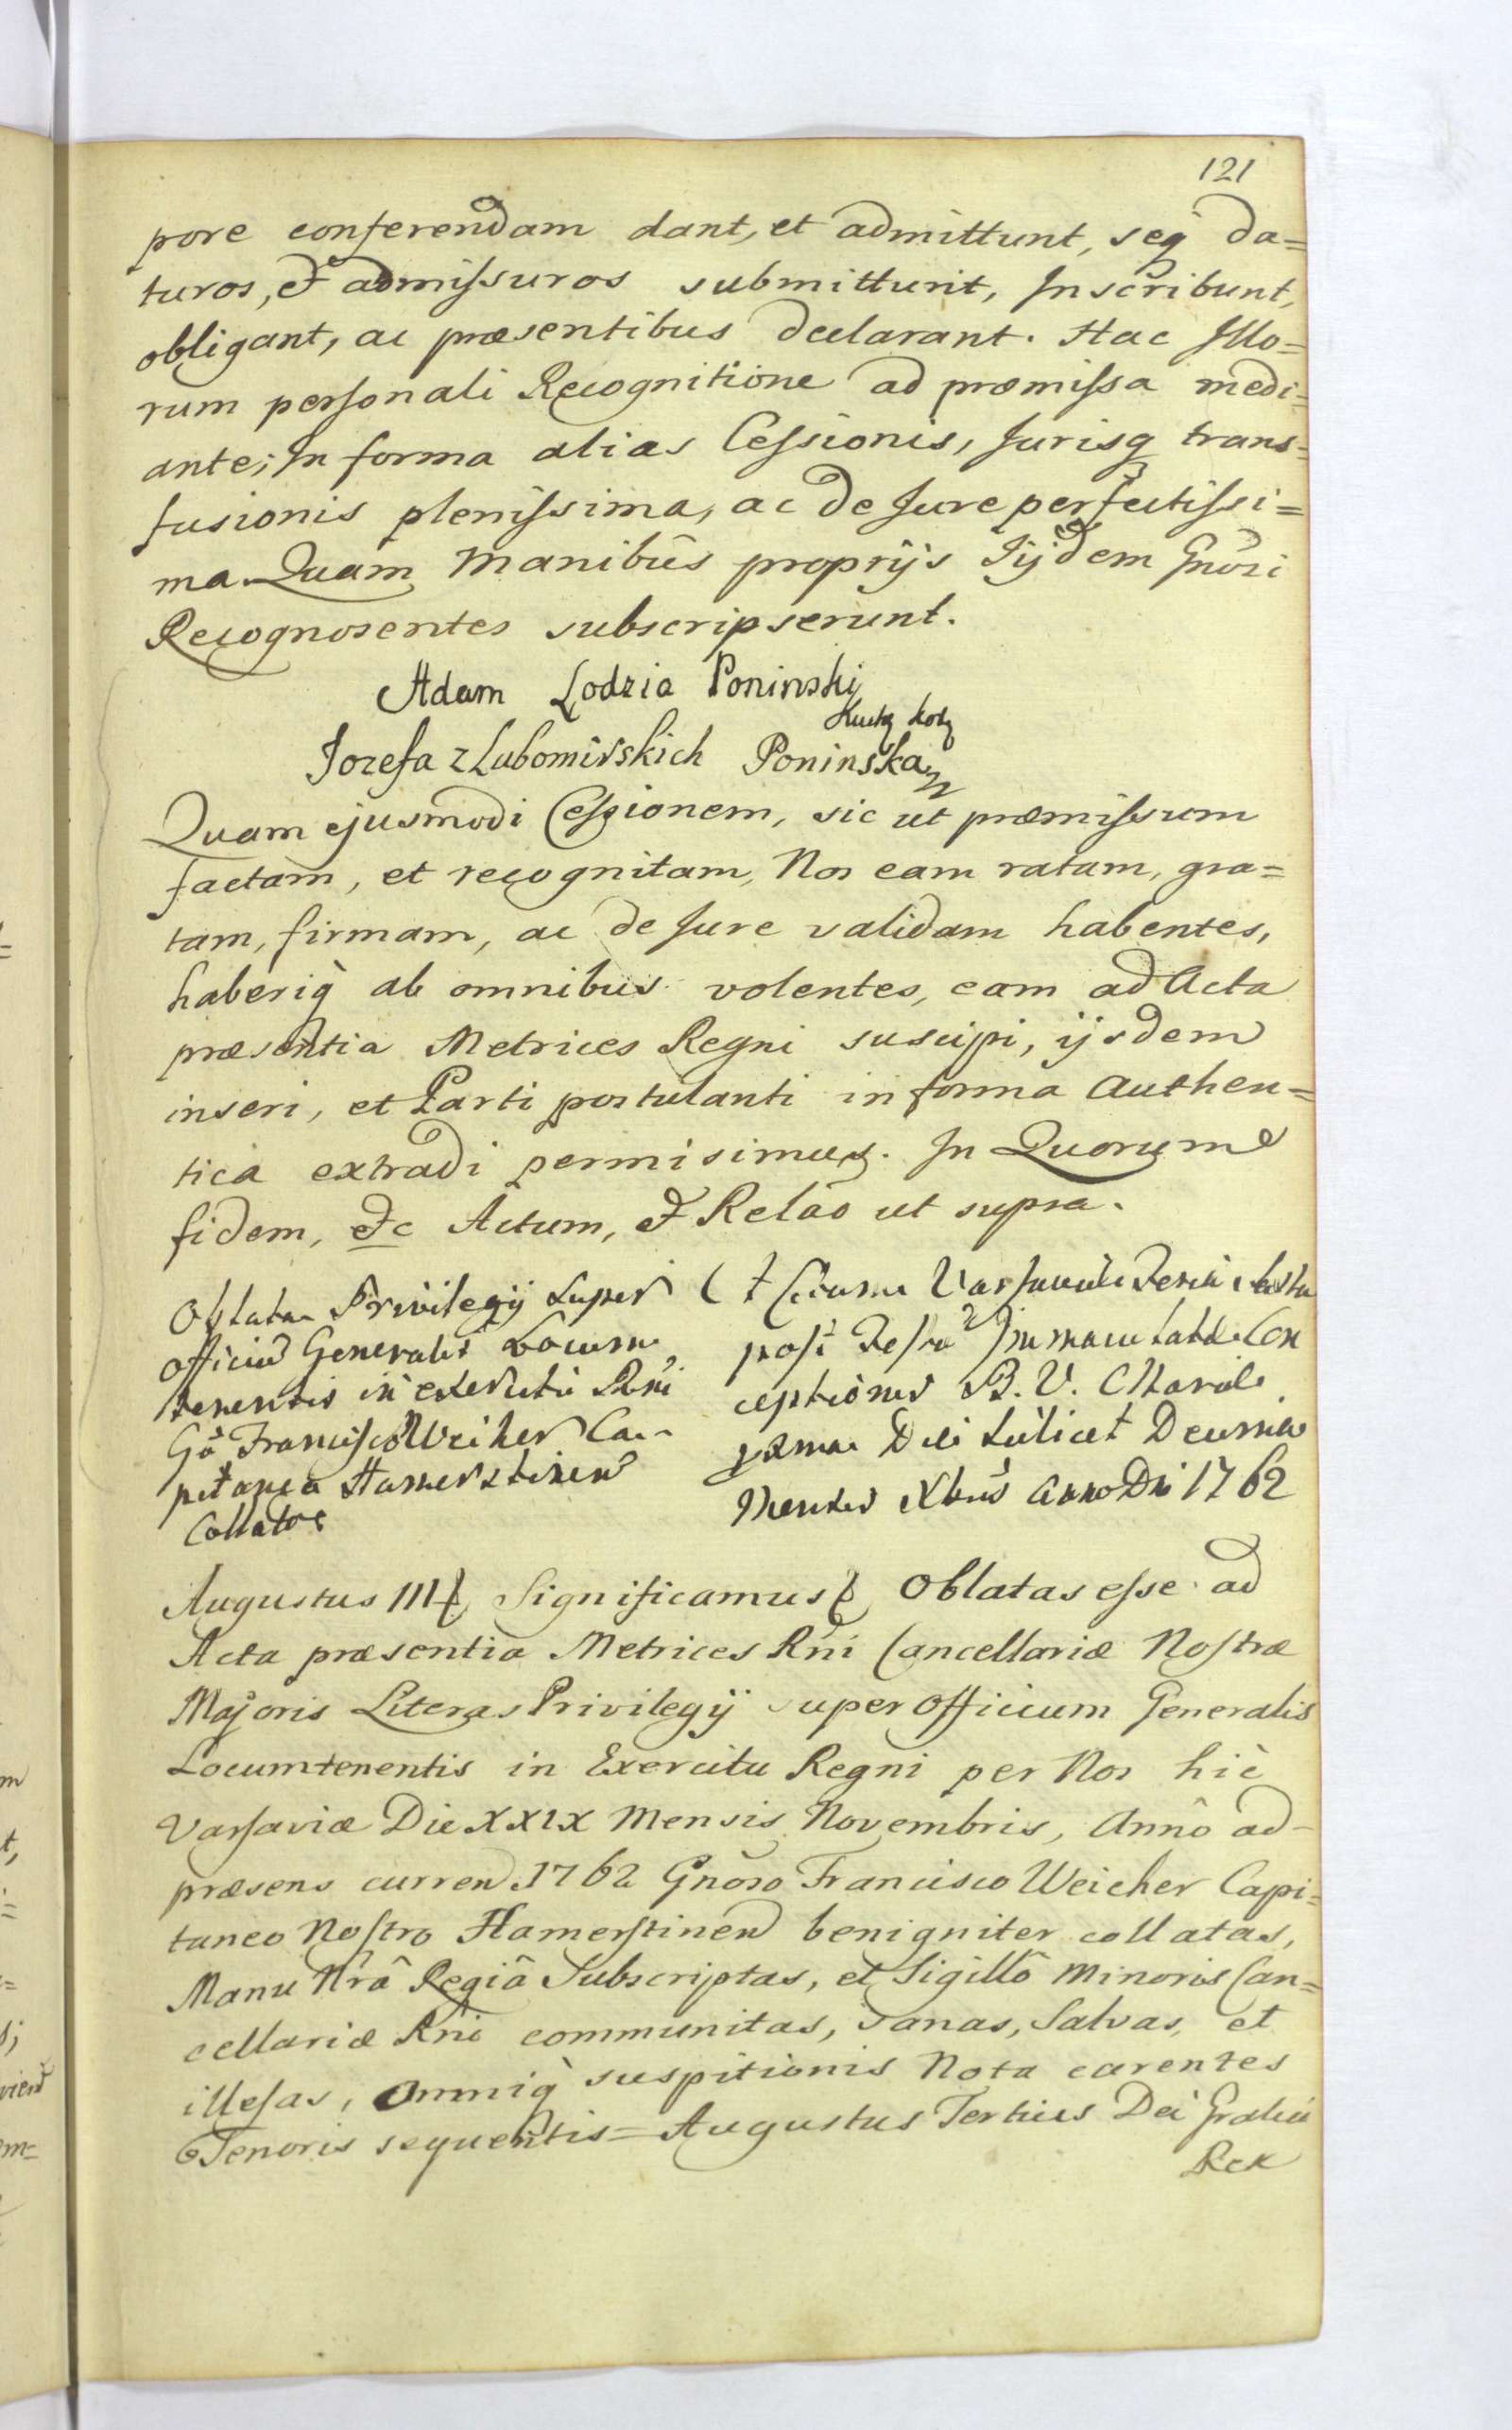 121
pore conferendam dant, et admittunt, seq̃ da=
turos, et admiſsuros submittunt, Inscribunt,
obligant, ac præsentibus declarant. Hac Illo=
rum perſonali Recognitione ad præmiſsa medi=
ante; In forma alias Ceſsionis, Jurisq̃ trans=
fusionis pleniſsima, ac de Jure perfectiſsi=
ma. Quam Manibûs proprijs Iijdem Gnõsi
Recognoscentes subscripserunt.
Adam Lodzia Poninski
Kucha: Kor:
Jozefa z Lubomirskich Poninska
Quam ejusmodi Ceſsionem, sic ut præmiſsum
factam, et recognitam, Nos eam ratam, gra=
tam, firmam, ac de Jure validam habentes,
haberiq̀ ab omnibus volentes, eam ad Acta
præsentia Metrices Regni suscipi, ijsdem
inseri, et Parti postulanti in forma Authen=
tica extradi permisimus. In Quorum
fidem, etc Actum, et Relaõ ut supra.
Oblata Privilegij super
Officiũ Generalis Locum
tenentis in exercitu Rni
Gõ Francisco Weiher Ca-
pitaneo Hamersztinen
Collatæ
Varsaviæ Feria
post Feſtũ Immaculatæ Con
ceptionis B. V. Mariæ
Die scilicet Decima
Mensis Xbris Anno Dni 1762
Augustus III Significamus Oblatas eſse ad
Acta præsentia Metrices Rñi Cancellariæ Noſtræ
Majoris Literas Privilegij super Officium Generalis
Locumtenentis in Exercitu Regni per Nos hic
Varſaviæ Die XXIX Mensis Novembris, Annô ad-
præsens curren 1762 Gnõso Francisco Weicher Capi=
taneo Noſtro Hamerſtinen benigniter collatas,
Manu Nrâ Regiâ Subscriptas, et Sigillô Minoris Can=
cellariæ Rni communitas, Sanas, Salvas, et
illeſas, Omniq̀ suspitionis Nota carentes
Tenoris sequentis= Augustus Tertius Dei Gratia
Rex